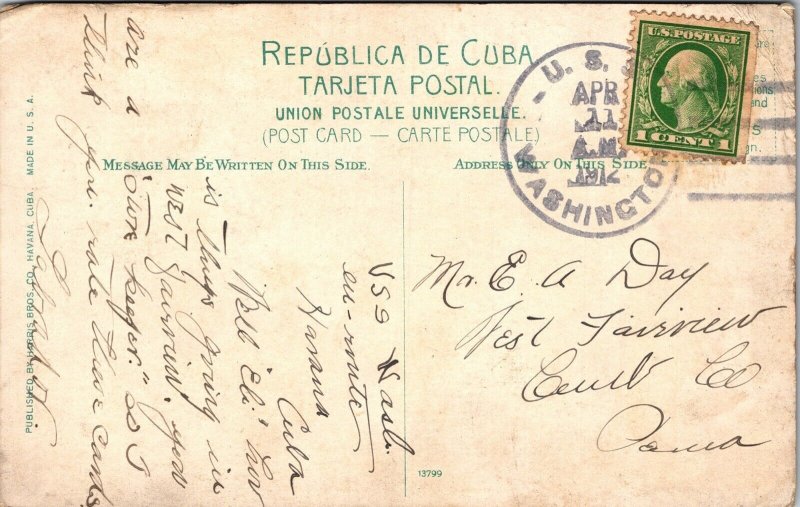 REPÚBLICA DE CUBA
TARJETA POSTAL.
UNION POSTALE UNIVERSELLE.
(POST CARD — CARTE POSTALE)
MESSAGE MAY BE WRITTEN ON THIS SIDE.
ADDRESS ONLY ON THIS SIDE
U. S. S.
APR
11
A.M.
1912
WASHINGTON
U.S. POSTAGE
1 CENT 1
Mr. E. A Day
West Fairview
Cumb Co
Penna
USS Wash.
en-route
Havana
Cuba
Well "Eli" how
is things going in
West Fairview, you
are a "Time keeper" so I
think you rate these cards
PUBLISHED BY HARRIS BROS. CO., HAVANA, CUBA. MADE IN U. S. A.
13799